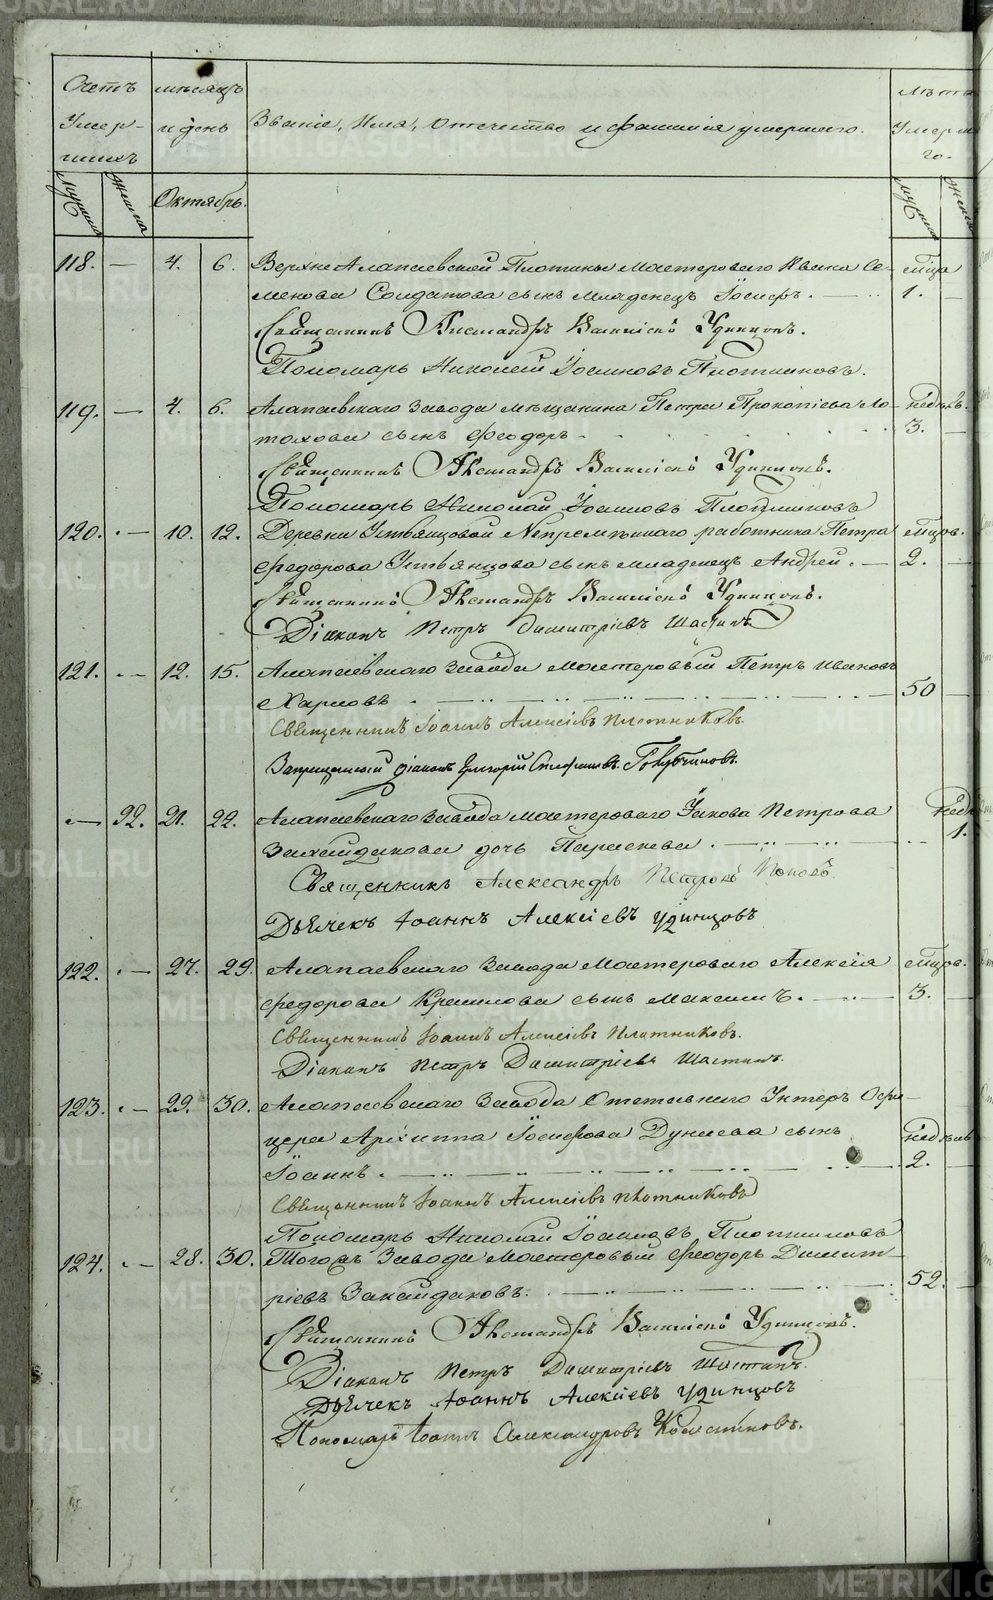 Счетъ Умер-шихъ
мѣсяцъ и день
Званіе, Имя, Отечество и фамилія умершаго.
Лѣта Умерша го.
Мужска женска
Октябрь.
Мужска женска
118. — 4. 6. Верхне Алапаевской Плотины Мастероваго Ивана Се- мѣсяца
менова Солдатова сынъ младенецъ Іосифъ. 1. —
Священникъ Александръ Васильевъ Удинцовъ.
Пономарь Николай Іоанновъ Плотниковъ.
119. — 4. 6. Алапаевскаго Завода мѣщанина Петра Прокопіева Ло- недѣль.
сынъ Феодоръ. 3. —
Священникъ Александръ Васильевъ Удинцовъ.
Пономарь Николай Іоанновъ Плотниковъ
120. — 10. 12. Деревни Устьянцовой Непремѣннаго работника Петра мѣсяцов.
Федорова Устьянцова сынъ младенецъ Андрей. — 2. —
Священникъ Александръ Васильевъ Удинцовъ.
Діаконъ Петръ Димитріевъ
121. — 12. 15. Алапаевскаго Завода Мастеровый Петръ Ивановъ
Харловъ 50 —
Священникъ Іоаннъ Алексіевъ Плотниковъ.
Запрещенный діаконъ Григорій Стефановъ
— 92. 21. 22. Алапаевскаго Завода Мастероваго Іакова Петрова недѣл
дочь Параскева. 1.
Священникъ Александръ Петровъ Поповъ.
Дьячекъ Іоаннъ Алексіевъ Удинцовъ
122. — 27. 29. Алапаевскаго Завода Мастероваго Алексія мѣсяцов.
Федорова сынъ Максимъ. 3. —
Священникъ Іоаннъ Алексіевъ Плотниковъ.
Діаконъ Петръ Димитріевъ
123. — 29. 30. Алапаевскаго Завода Отставнаго Унтеръ Офи-
цера Архиппа Іосифова Дунаева сынъ недѣль
Іоаннъ. 2. —
Священникъ Іоаннъ Алексіевъ Плотниковъ
Пономарь Николай Іоанновъ Плотниковъ
124. — 28. 30. Тогожъ Завода Мастеровый Феодоръ Димит-
ріевъ 52. —
Священникъ Александръ Васильевъ Удинцовъ.
Діаконъ Петръ Димитріевъ
Дьячекъ Іоаннъ Алексіевъ Удинцовъ
Пономарь Іоаннъ Александровъ
METRIKI.GASO-URAL.RU